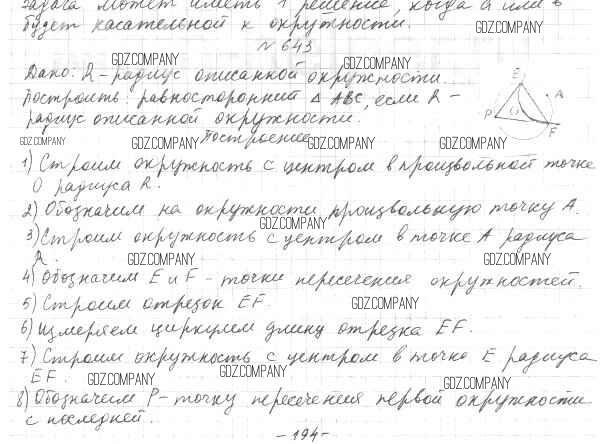 задача может иметь 1 решение, когда a или b
будет касательной к окружности.
GDZ.COMPANY
№ 643
GDZ.COMPANY
GDZ.COMPANY
Дано: R - радиус описанной окружности.
Построить: равносторонний △ ABC, если R -
радиус описанной окружности.
E
A
P
O
F
GDZ.COMPANY GDZ.COMPANY GDZ.COMPANY GDZ.COMPANY
Построение
1) Строим окружность с центром в произвольной точке
O радиуса R.
2) Обозначим на окружности произвольную точку A.
GDZ.COMPANY
3) Строим окружность с центром в точке A радиуса
R.
GDZ.COMPANY GDZ.COMPANY
4) Обозначим E и F - точки пересечения окружностей.
5) Строим отрезок EF.
GDZ.COMPANY
6) Измеряем циркулем длину отрезка EF.
7) Строим окружность с центром в точке E радиуса
EF.
GDZ.COMPANY GDZ.COMPANY GDZ.COMPANY
8) Обозначим P - точку пересечения первой окружности
с последней.
- 194 -